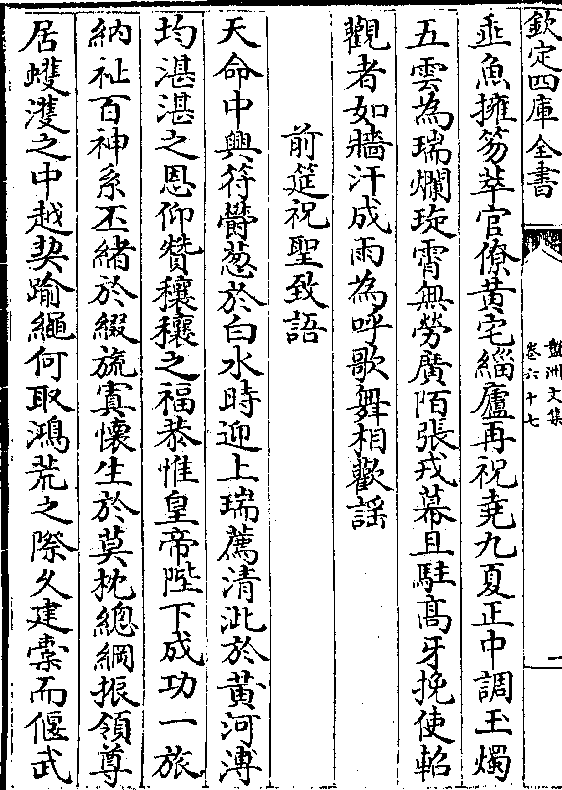 欽定四庫全書
盤洲文集
卷六十七
一
垂魚擁笏萃官僚黄宅緇廬再祝堯九夏正中調玉燭
五雲為瑞爛琁霄無勞廣陌張戎幕且駐髙牙挽使軺
觀者如牆汗成雨為呼歌舞相歡謡
前筵祝聖致語
天命中興符欝葱於白水時迎上瑞薦清泚於黄河溥
均湛湛之恩仰贊穰穰之福恭惟皇帝陛下成功一旅
納祉百神系丕緒於綴旒寘懷生於奠枕總綱振領尊
居蠖濩之中越契踰繩何取鴻荒之際久建櫜而偃武